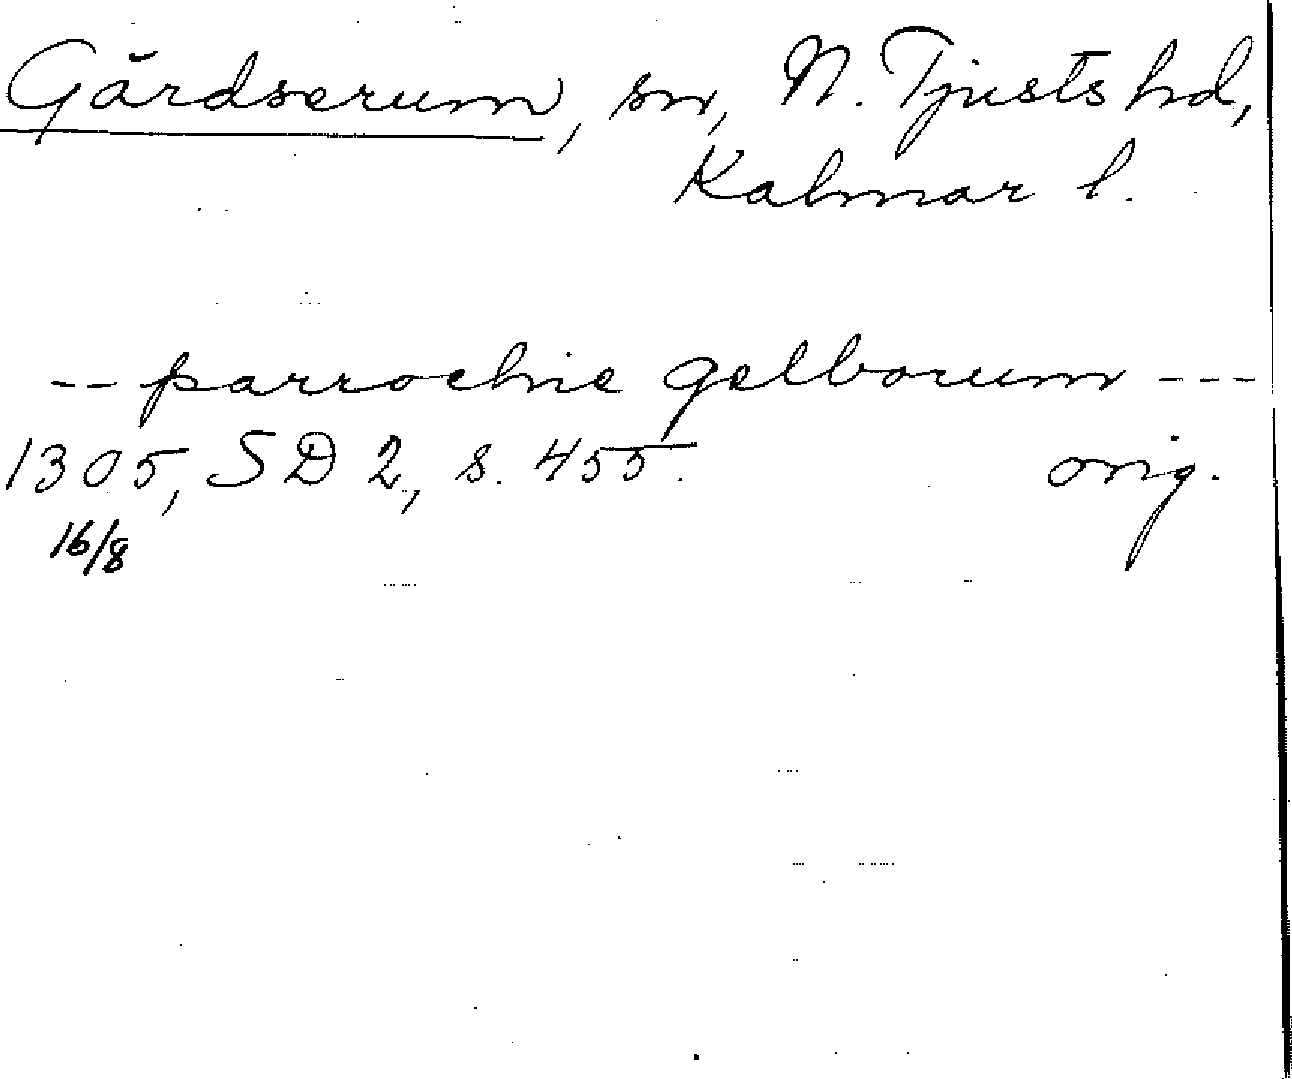 Gärdserum, sn, N. Tjusts hd,
Kalmar l.
-- parrochie gelborum ---
1305, SD 2, s. 455. orig.
16/8